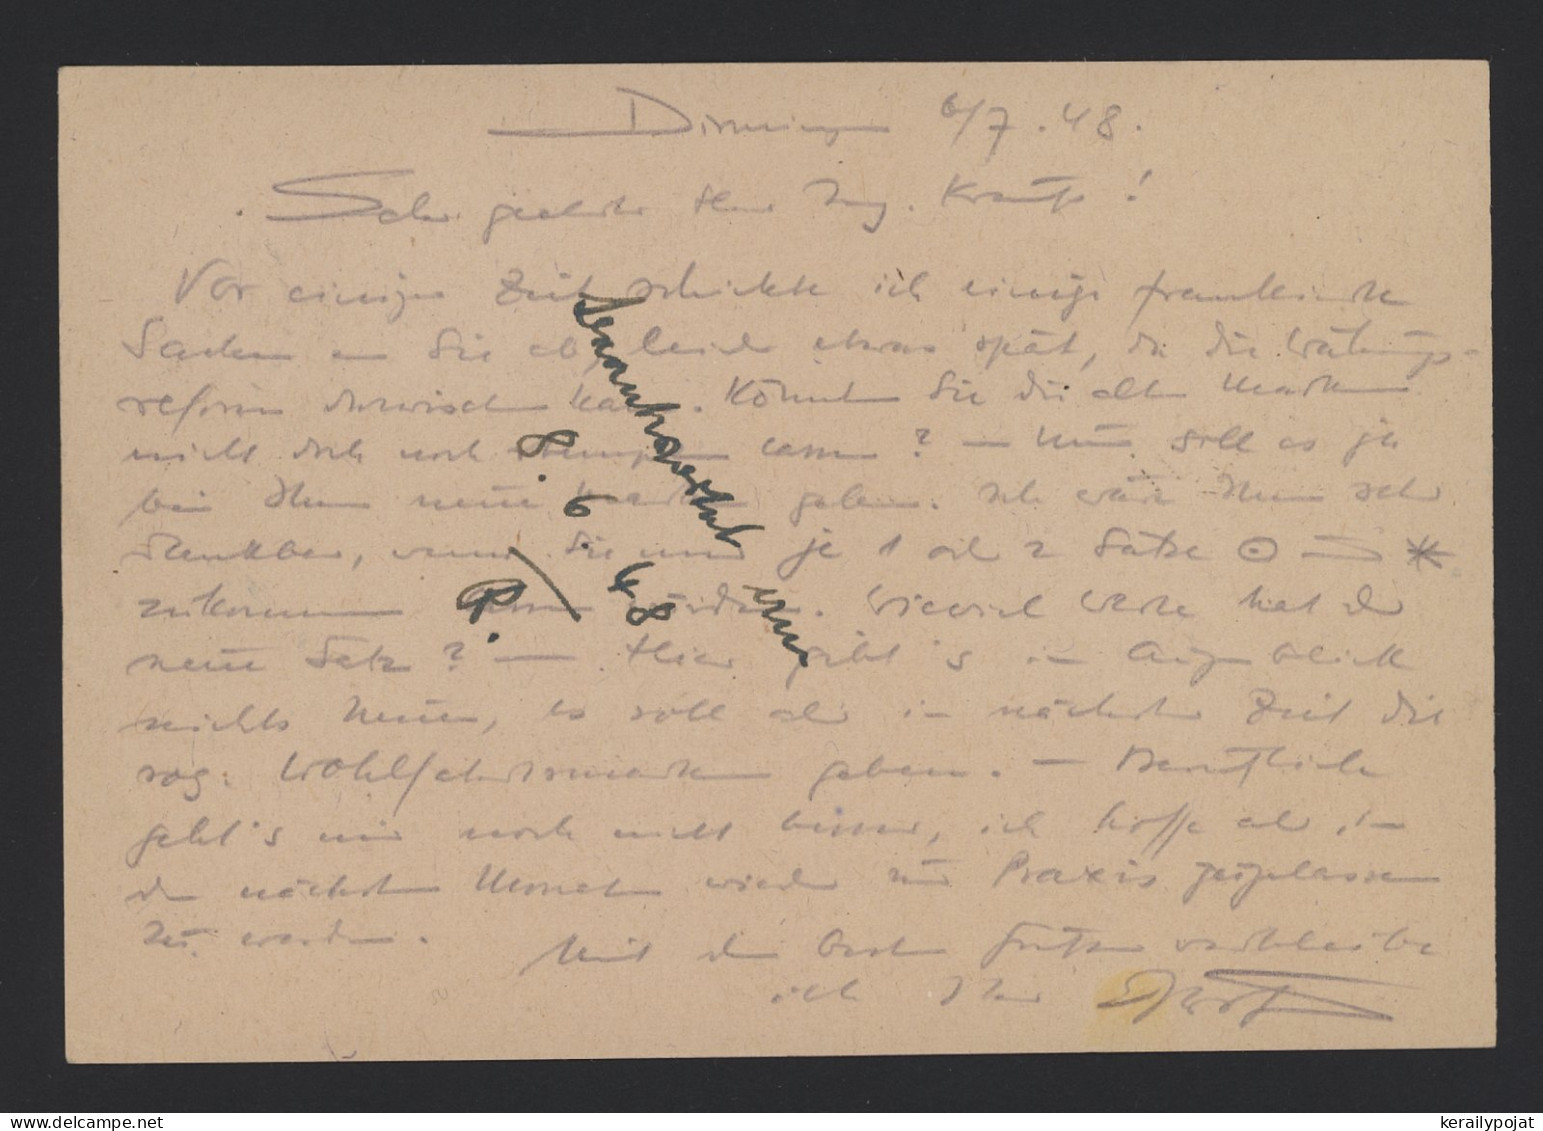 Dirmingen 6/7.48.
Sehr geehrter Herr Ing. !
Vor einiger Zeit schickte ich einige frankierte
Sachen an Sie ab, leider etwas spät, da die Währungs-
reform dazwischen kam. Könnten Sie die alten Marken
nicht doch noch stempeln lassen? — Nun soll es ja
bei Ihnen neue Marken geben. Ich wäre Ihnen sehr
dankbar, wenn Sie mir je 1 od 2 Sätze ⊙ *
zukommen lassen würden. Wieviel Werte hat der
neue Satz? — Hier gibt's im Augenblick
nichts Neues, es soll aber in nächster Zeit die
sog. Wohlfahrtsmarken geben. — Beruflich
geht's mir noch nicht besser, ich hoffe aber in
den nächsten Monaten wieder zur Praxis zugelassen
zu werden.
Mit den besten Grüßen verbleibe
ich Ihr
8. 6. 48
kerailypojat
www.delcampe.net
kerailypojat